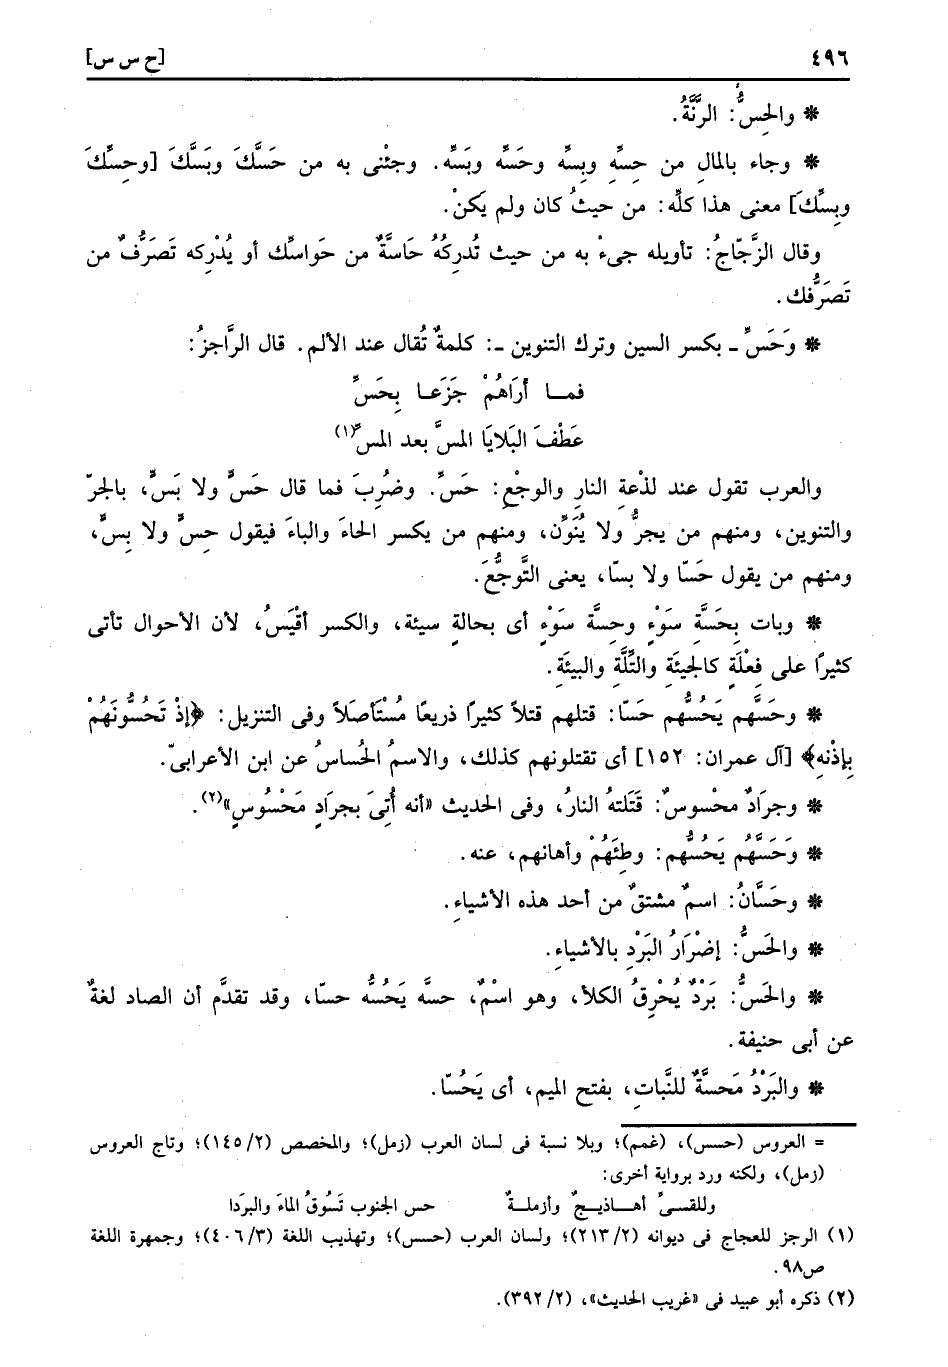 ٤٩٦
[ح س س]
* والحِسُّ: الرَّنَّةُ.
* وجاء بالمالِ من حِسِّه وبِسِّه وحَسِّه وبَسِّه. وجئْنى به من حَسَّكَ وبَسَّكَ [وحِسِّكَ
وبِسِّكَ] معنى هذا كلِّه: من حيثُ كان ولم يَكنْ.
وقال الزَّجّاجُ: تأويله جىءْ به من حيث تُدرِكُهُ حَاسةٌ من حَواسِّك أو يُدْرِكه تَصَرُّفٌ من
تَصَرُّفك.
* وَحَسِّ ـ بكسر السين وترك التنوين ـ: كلمةٌ تُقال عند الألم. قال الرَّاجزُ:
فمـــا أرَاهُمْ جَزَعـا بِحَسِّ
عَطْفَ البَلايَا المسَّ بعد المسِّ(١)
والعرب تقول عند لذْعةِ النارِ والوجْعِ: حَسِّ. وضُرِبَ فما قال حَسٍّ ولا بَسٍّ، بالجرّ
والتنوين، ومنهم من يجرُّ ولا يُنَوِّن، ومنهم من يكسر الحاءَ والباءَ فيقول حِسٍّ ولا بِسٍّ،
ومنهم من يقول حَسّا ولا بسّا، يعنى التَّوجُّعَ.
* وبات بِحَسَّةِ سَوْءٍ وحِسةِ سَوْءٍ أى بحالةٍ سيئة، والكسر أقْيَسُ، لأن الأحوال تأتى
كثيرًا على فِعْلَةٍ كالجيئَةِ والتِّلَّةِ والبيئَةِ.
* وحَسَّهم يَحُسُّهم حَسّا: قتلهم قتلاً كثيرًا ذريعًا مُسْتأصَلاً وفى التنزيل: ﴿إذْ تَحُسُّونَهُمْ
بِإذْنهِ﴾ [آل عمران: ١٥٢] أى تقتلونهم كذلك، والاسمُ الحُساسُ عن ابن الأعرابىّ.
* وجرَادٌ محْسوسٌ: قَتَلتهُ النارُ، وفى الحديث «أنه أُتِىَ بجرَادٍ مَحْسُوسٍ»(٢).
* وَحَسَّهُم يَحُسُّهم: وطِئَهُمْ وأهانهم، عنه.
* وحَسَّانُ: اسمٌ مشتقٌ من أحد هذه الأشياءِ.
* والحَسُّ: إضْرَارُ البَرْدِ بالأشياءِ.
* والحَسُّ: بَرْدٌ يُحْرِقُ الكلأ، وهو اسْمٌ، حسَّه يَحُسُّه حسّا، وقد تقدَّم أن الصاد لغةٌ
عن أبى حنيفة.
* والبَرْدُ مَحسةٌ للنَّباتِ، بفتح الميم، أى يَحُسّا.
= العروس (حسس)، (غمم)؛ وبلا نسبة فى لسان العرب (زمل)؛ والمخصص (٢/ ١٤٥)؛ وتاج العروس
(زمل)، ولكنه ورد برواية أخرى:
وللقسىِّ أهـــاذيـــجٌ وأزملـــةٌ حس الجنوب تَسُوقُ الماءَ والبردَا
(١) الرجز للعجاج فى ديوانه (٢/ ٢١٣)؛ ولسان العرب (حسس)؛ وتهذيب اللغة (٣/ ٤٠٦)؛ وجمهرة اللغة
ص٩٨.
(٢) ذكره أبو عبيد فى «غريب الحديث»، (٢/ ٣٩٢).